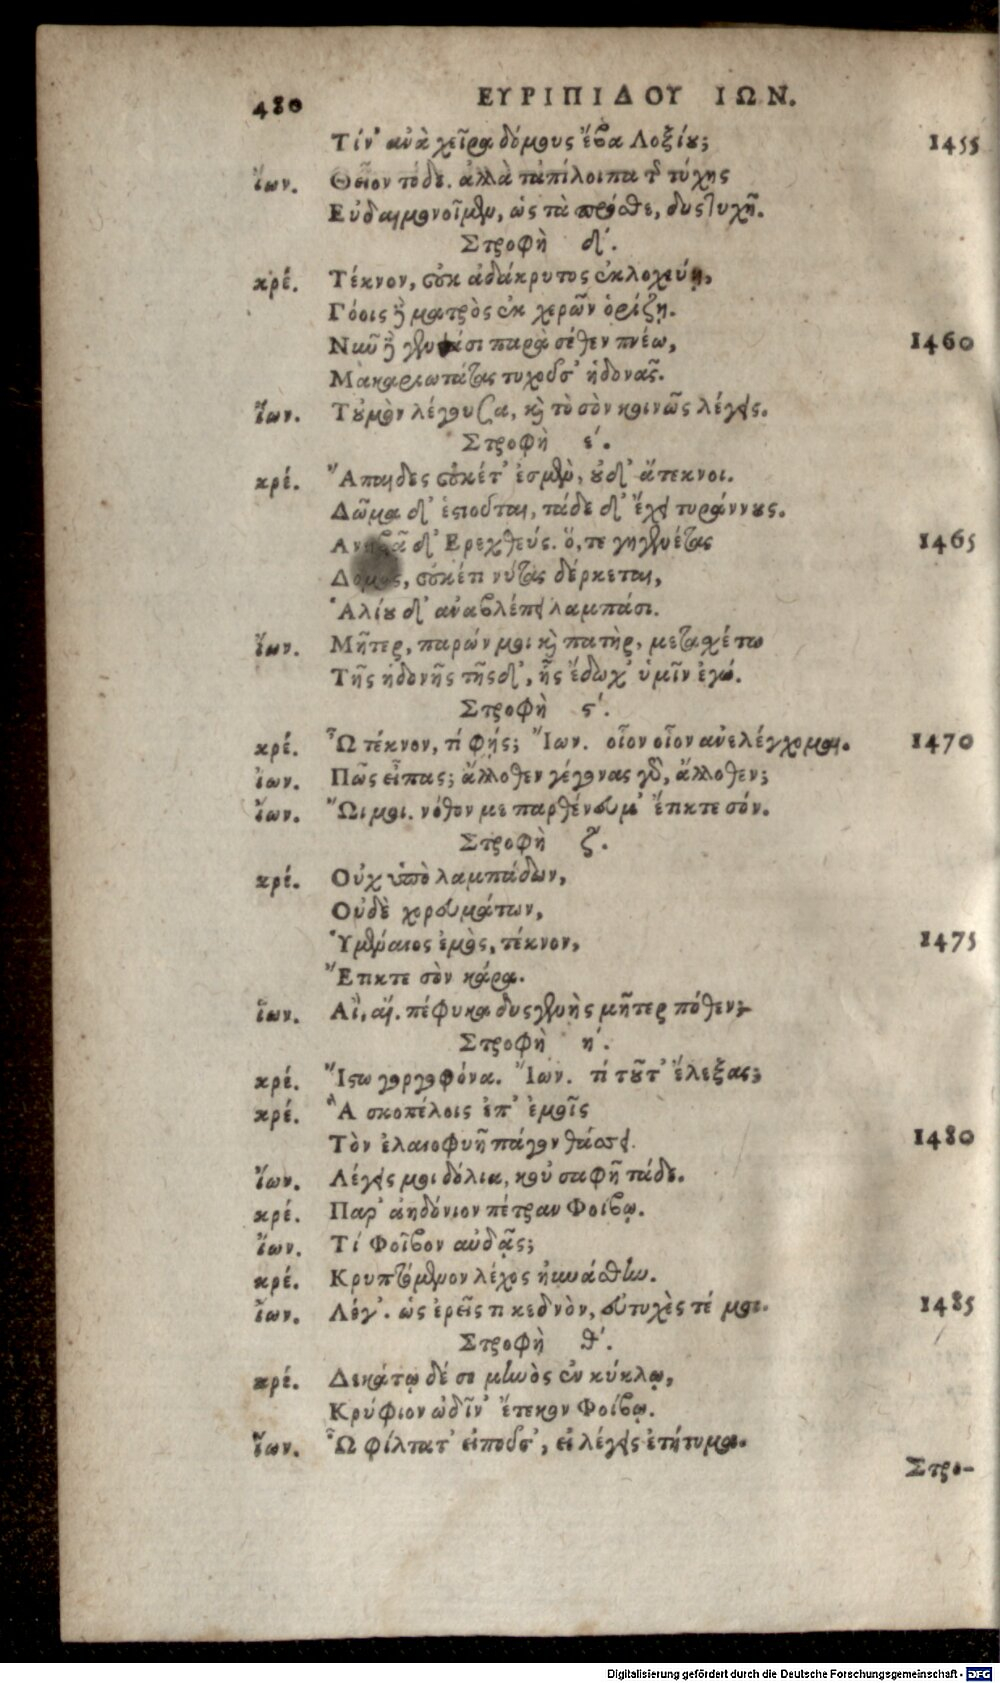 480 ΕΥΡΙΠΙΔΟΥ ΙΩΝ.
Τίν' ἀνὰ χεῖρα δόμους ἔβα Λοξίου; 1455
ἴων. Θεῖον τόδε. ἀλλὰ τἀπίλοιπα τῆς τύχης
Εὐδαιμονοῖμεν, ὡς τὰ πρόσθε, δυστυχῆ.
Στροφὴ δ'.
κρέ. Τέκνον, οὐκ ἀδάκρυτος ἐκλοχεύῃ,
Γόοις ἢ ματρὸς ἐκ χερῶν ὁρίζῃ.
Νῦν ἢ γενυάσι παρὰ σέθεν πνέω, 1460
Μακαριωτάτας τυχοῦσ' ἡδονᾶς.
ἴων. Τοὐμὸν λέγουσα, καὶ τὸ σὸν κοινῶς λέγεις.
Στροφὴ ε'.
κρέ. Ἄπαιδες οὐκέτ' ἐσμὲν, οὐδ' ἄτεκνοι.
Δῶμα δ' ἑστιοῦται, τάδε δ' ἔχει τυράννους.
Ἀνηβᾶ δ' Ερεχθεύς. ὅ, τε γηγενέτας 1465
Δόμος, οὐκέτι νύκτας δέρκεται,
Ἁλίου δ' ἀναβλέπει λαμπάσι.
ἴων. Μῆτερ, παρών μοι καὶ πατὴρ, μετασχέτω
Τῆς ἡδονῆς τῆσδ', ἧς ἔδωχ' ὑμῖν ἐγώ.
Στροφὴ ϛ'.
κρέ. Ὦ τέκνον, τί φῄς; Ἴων. οἷον οἷον ἀνελέγχομαι. 1470
ἴων. Πῶς εἶπας; ἄλλοθεν γέγονας γὰρ, ἄλλοθεν;
ἴων. Ὤι μοι. νόθον με παρθένευμ' ἔτικτε σόν.
Στροφὴ ζ'.
κρέ. Οὐχ ὑπὸ λαμπάδων,
Οὐδὲ χορευμάτων,
Ὑμέναιος ἐμὸς, τέκνον, 1475
Ἔτικτε σὸν κάρα.
ἴων. Αἲ, αἴ. πέφυκα δυσγενὴς μῆτερ πόθεν;
Στροφὴ η'.
κρέ. Ἴστω γοργοφόνα. Ἴων. τί τοῦτ' ἔλεξας;
κρέ. Ἃ σκοπέλοις ἐπ' ἐμοῖς
Τὸν ἐλαιοφυῆ πάγον θάσσει. 1480
ἴων. Λέγεις μοι δόλια, κοὐ σαφῆ τάδε.
κρέ. Παρ' ἀηδόνιον πέτραν Φοίβῳ.
ἴων. Τί Φοῖβον αὐδᾷς;
κρέ. Κρυπτόμενον λέχος ηὐνάσθην.
ἴων. Λέγ'. ὡς ἐρεῖς τι κεδνὸν, εὐτυχὲς τέ μοι. 1485
Στροφὴ θ'.
κρέ. Δεκάτῳ δέ σε μηνὸς ἐν κύκλῳ,
Κρύφιον ὠδῖν' ἔτεκον Φοίβῳ.
ἴων. Ὦ φίλτατ' εἰποῦσ', εἰ λέγεις ἐτήτυμα.
Στρο-
Digitalisierung gefördert durch die Deutsche Forschungsgemeinschaft - DFG